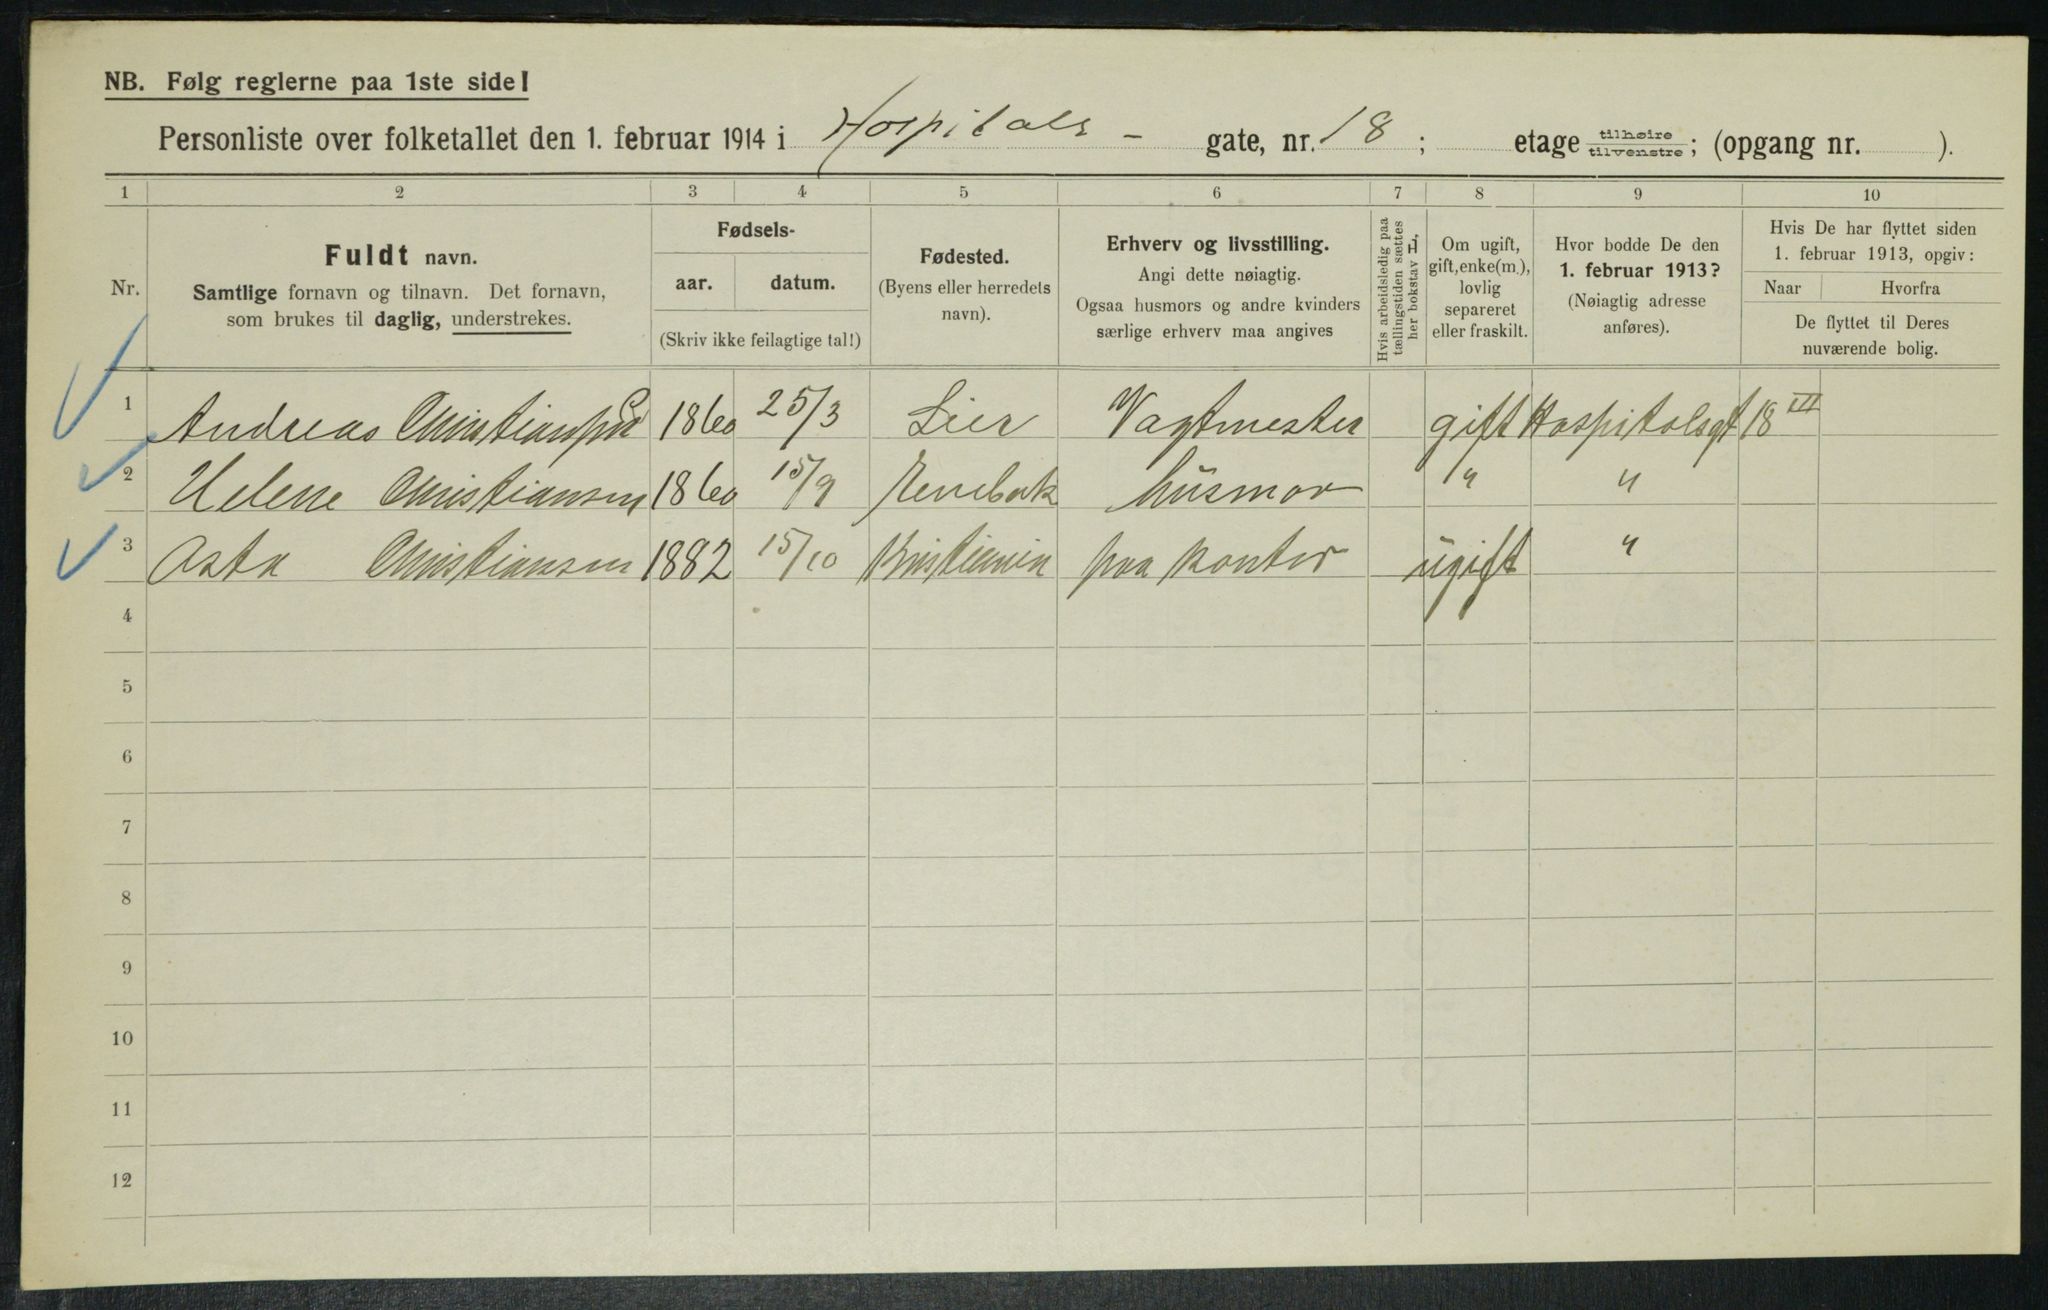 NB. Følg reglerne paa 1ste side!
Personliste over folketallet den 1. februar 1914 i Hospitals - gate, nr. 18 ; etage tilhøire/tilvenstre; (opgang nr. ).
1 2 3 4 5 6 7 8 9 10
Nr.
Fuldt navn.
Samtlige fornavn og tilnavn. Det fornavn,
som brukes til daglig, understrekes.
Fødsels-
aar. datum.
(Skriv ikke feilagtige tal!)
Fødested.
(Byens eller herredets
navn).
Erhverv og livsstilling.
Angi dette nøiagtig.
Ogsaa husmors og andre kvinders
særlige erhverv maa angives
Hvis arbeidsledig paa
tællingstiden sættes
her bokstav L.
Om ugift,
gift, enke(m.),
lovlig
separeret
eller fraskilt.
Hvor bodde De den
1. februar 1913?
(Nøiagtig adresse
anføres).
Hvis De har flyttet siden
1. februar 1913, opgiv:
Naar Hvorfra
De flyttet til Deres
nuværende bolig.
1 Andreas Christiansen 1860 25/3 Lier Vagtmester gift Hospitalsgt 18 III
2 Helene Christiansen 1860 15/9 Enebak husmor " "
3 Asta Christiansen 1882 15/10 Kristiania paa kontor ugift "
4
5
6
7
8
9
10
11
12